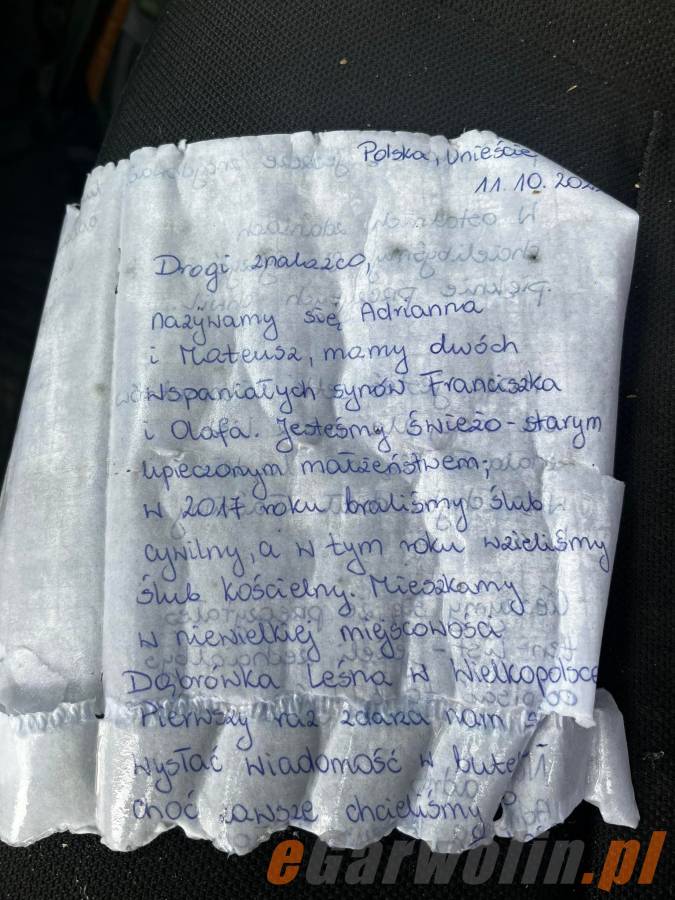 Polska, Unieście
11.10.202
Drogi znalazco,
nazywamy się Adrianna
i Mateusz, mamy dwóch
wspaniałych synów Franciszka
i Olafa. Jesteśmy świeżo-starym
upieczonym małżeństwem;
w 2017 roku braliśmy ślub
cywilny, a w tym roku wzieliśmy
ślub kościelny. Mieszkamy
w niewielkiej miejscowości
Dąbrówka Leśna w Wielkopolsce
Pierwszy raz zdarza nam s
wysłać wiadomość w butel
choć zawsze chcieliśmy
eGarwolin.pl